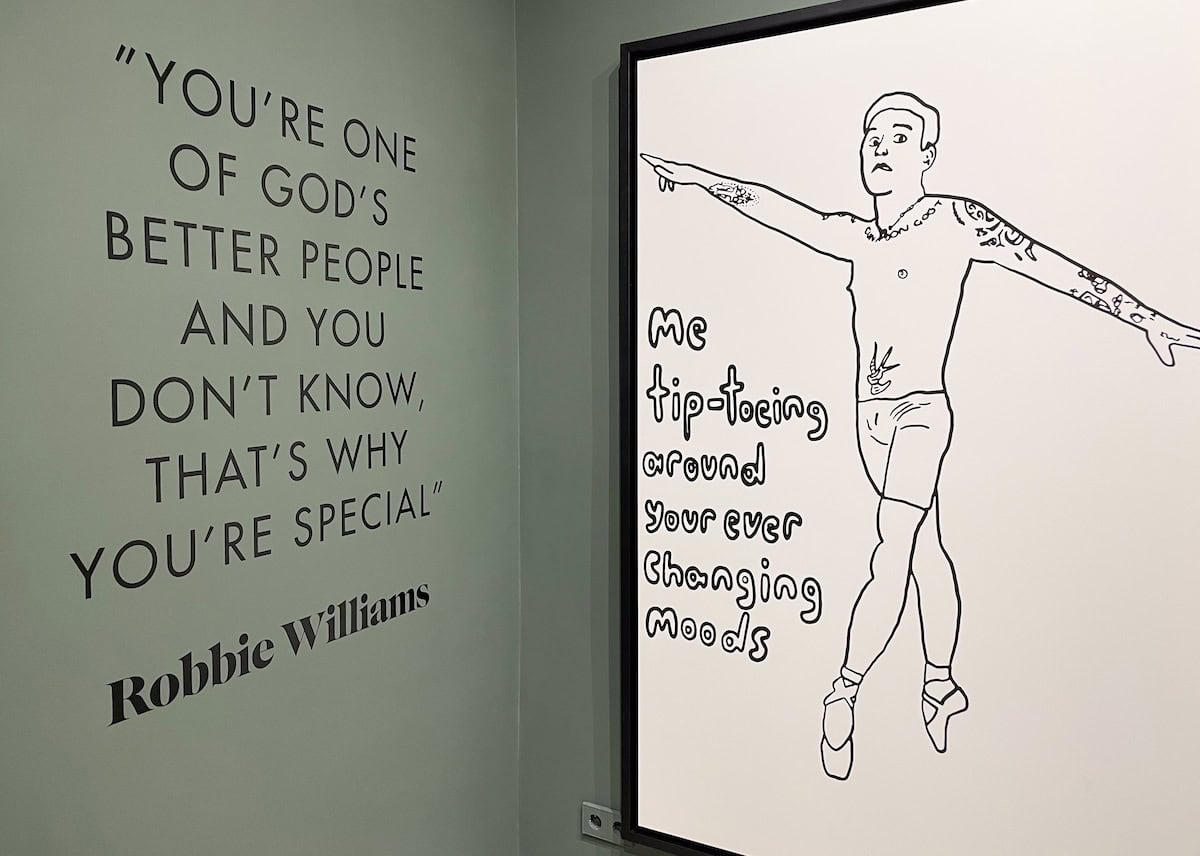 "YOU'RE ONE
OF GOD'S
BETTER PEOPLE
AND YOU
DON'T KNOW,
THAT'S WHY
YOU'RE SPECIAL"
Robbie Williams
Me
tip-toeing
around
your ever
changing
moods